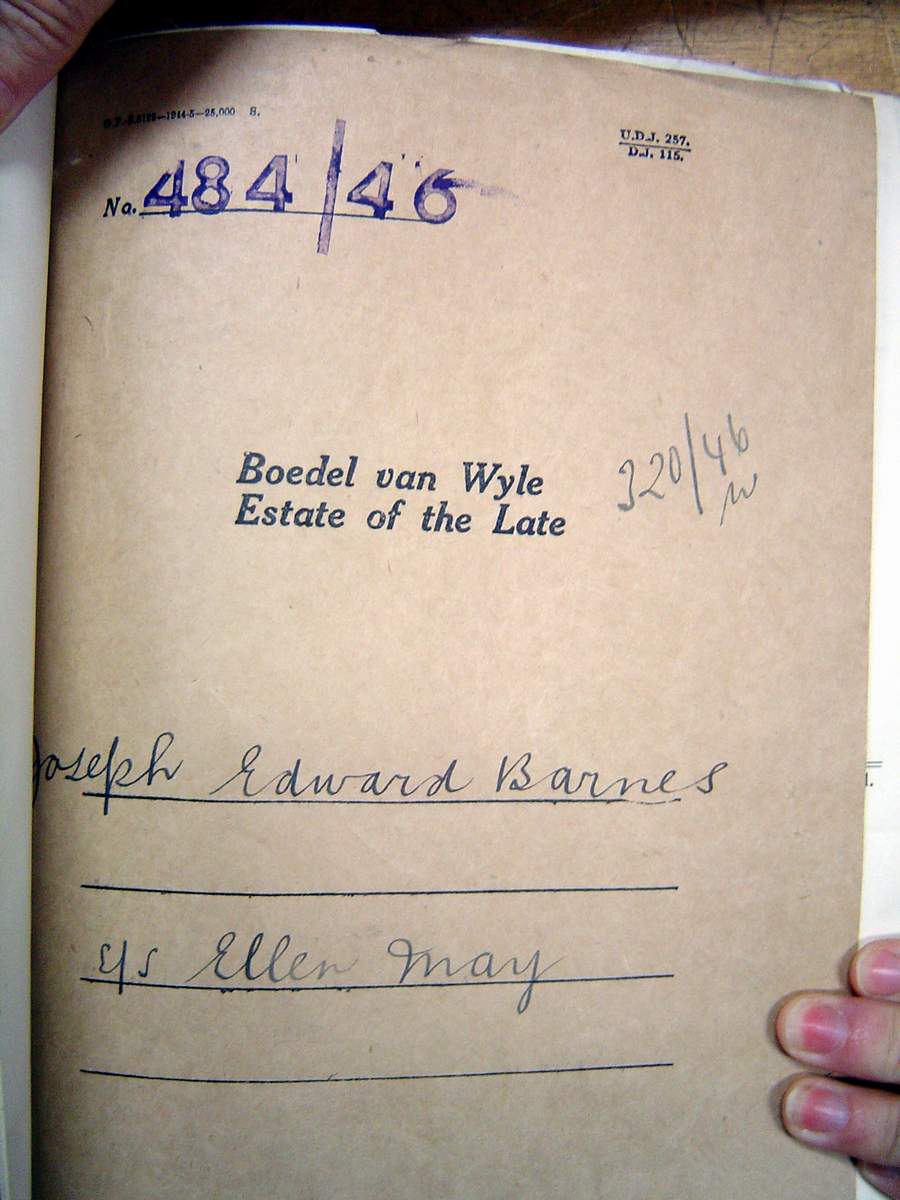 G.P.-S.6128—1944-5—25,000 S.
U.D.J. 257.
D.J. 115.
No. 484/46
Boedel van Wyle
Estate of the Late
320/46
Joseph Edward Barnes
s/s Ellen May